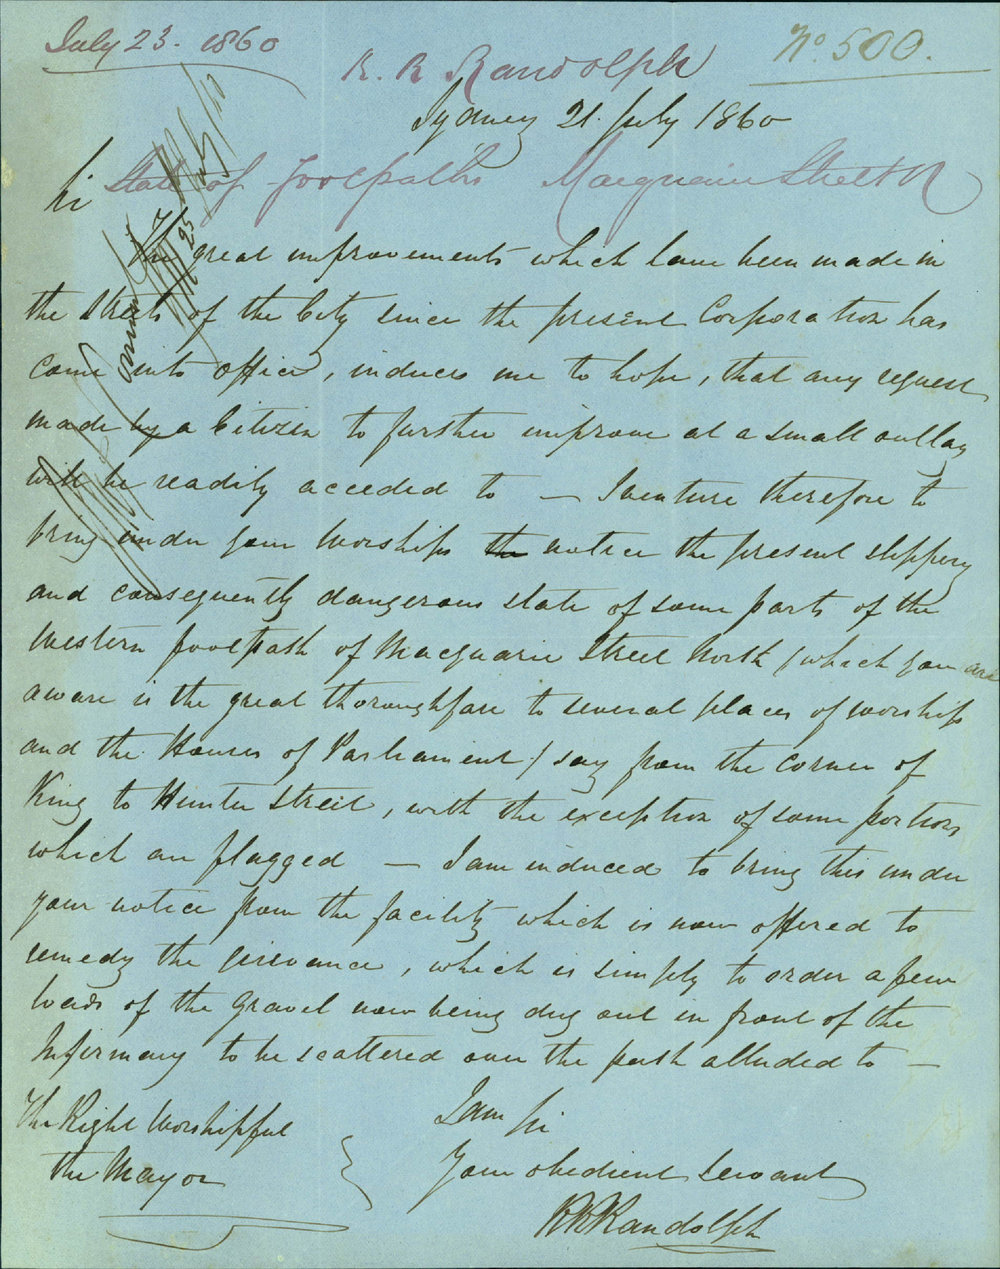 July 23. 1860
No. 500.
R. R. Randolph
Sydney 21. July 1860
State of Footpaths Macquarie Street N
Sir
The great improvements which have been made in
the Streets of the City since the present Corporation has
come into office, induces me to hope, that any request
made by a Citizen to further improve at a small outlay
will be readily acceded to — I venture therefore to
bring under your Worships the notice the present slippery
and consequently dangerous state of some parts of the
Western footpath of Macquarie Street North (which you are
aware is the great thoroughfare to several places of worship
and the Houses of Parliament) say from the corner of
King to Hunter Street, with the exception of some portions
which are flagged — I am induced to bring this under
your notice from the facility which is now offered to
remedy the grievance, which is simply to order a few
loads of the Gravel now being dug out in front of the
Infirmary to be scattered over the path alluded to —
I am Sir
Your obedient Servant
R R Randolph
The Right Worshipful
the Mayor